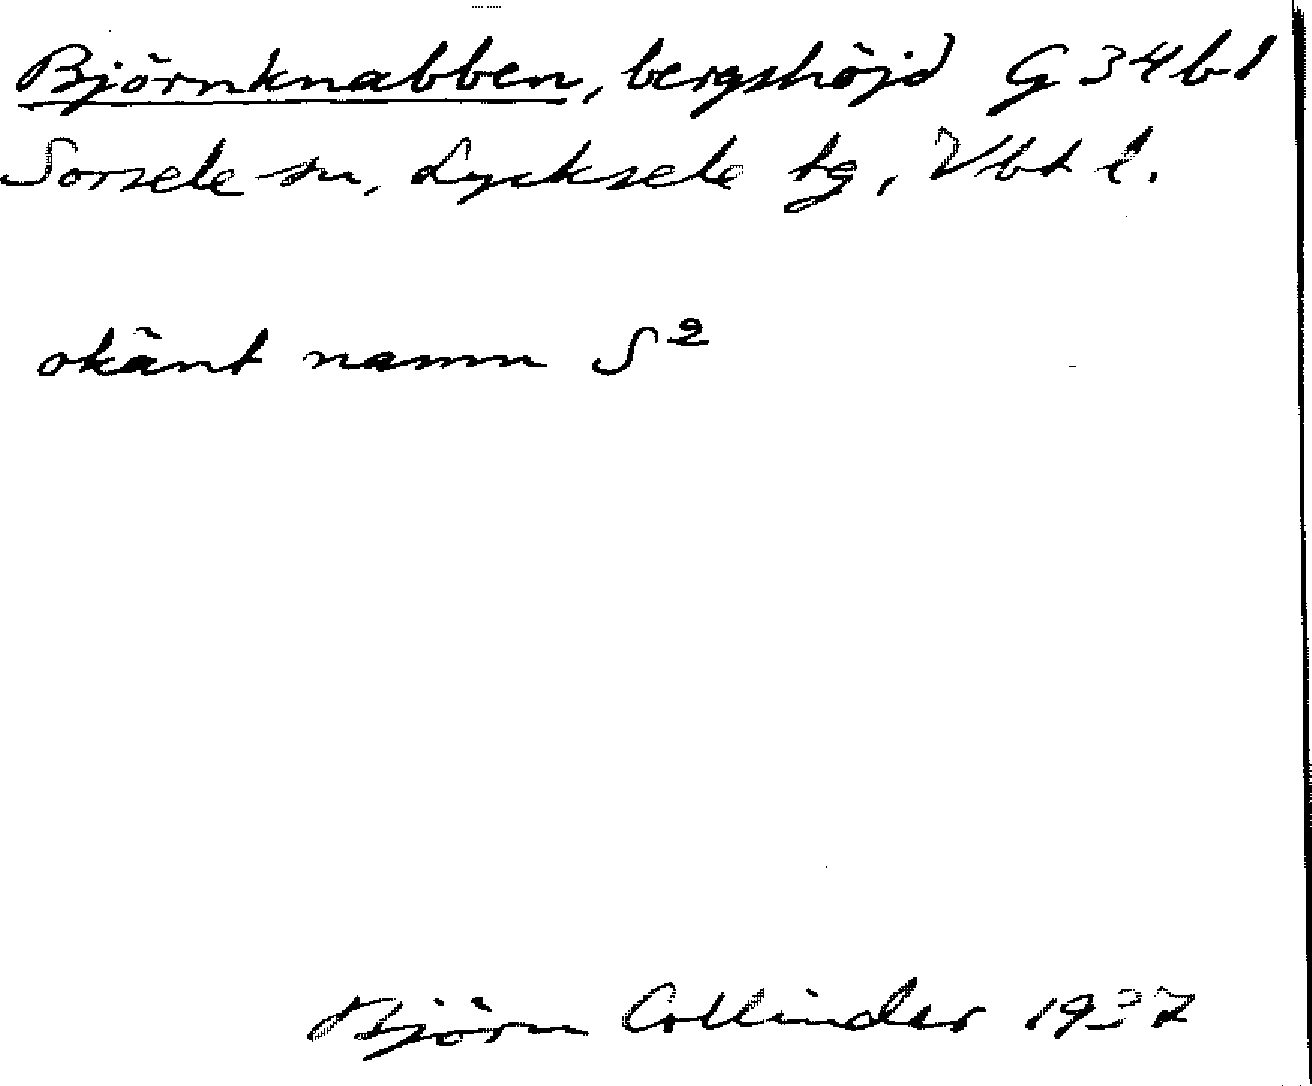 Björnknabben, bergshöjd G 34 b d
Sorsele sn, Lycksele tg, Vbt l.
okänt namn S²
Björn Collinder 1937